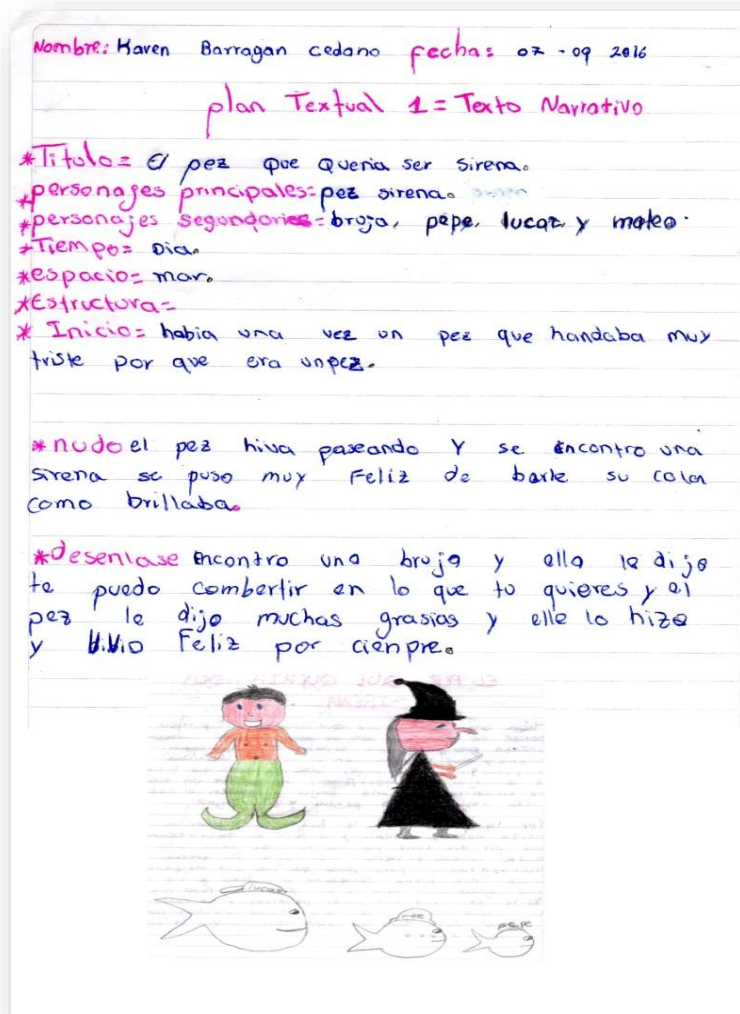 Nombre: Karen Barragan cedano fecha: 07 - 09 2016
plan Textual 1 = Texto Narrativo
*Titulo = El pez que Queria ser sirena.
*personajes principales = pez sirena.
*personajes segundories = bruja, pepe, lucaz y mateo.
*Tiempo = Dia.
*espacio = mar.
*Estructura =
* Inicio = habia una vez un pez que handaba muy
triste por que era un pez.
*nudo el pez hiva paseando y se encontro una
sirena se puso muy Feliz de barle su color
como brillaba.
*desenlase encontro una bruja y ella le dijo
te puedo combertir en lo que tu quieres y el
pez le dijo muchas grasias y elle lo hizo
y vivio Feliz por cienpre.
pepe